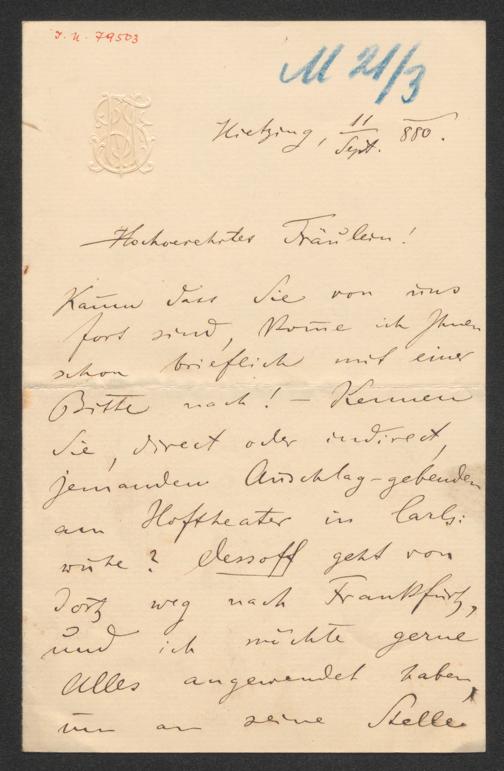 I. N. 79503
M 21/3
Hietzing, 11/Sept. 880.
Hochverehrtes Fräulein!
Kaum dass Sie von uns
fort sind, komme ich Ihnen
schon brieflich mit einer
Bitte nach! – Kennen
Sie, direct oder indirect,
jemanden Ausschlag-gebenden
am Hoftheater in Carls:
ruhe? Dessoff geht von
dort weg nach Frankfurt,
und ich möchte gerne
Alles angewendet haben,
um an seine Stelle